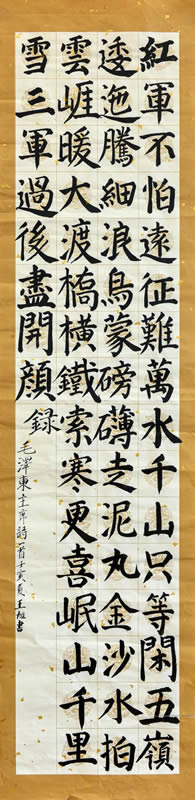 紅軍不怕遠征難萬水千山只等閑五嶺
逶迤騰細浪鳥蒙磅礴走泥丸金沙水拍
雲崕暖大渡橋橫鐵索寒更喜岷山千里
雪三軍過後盡開顏
錄毛澤東主席詩一首壬寅夏王旭書